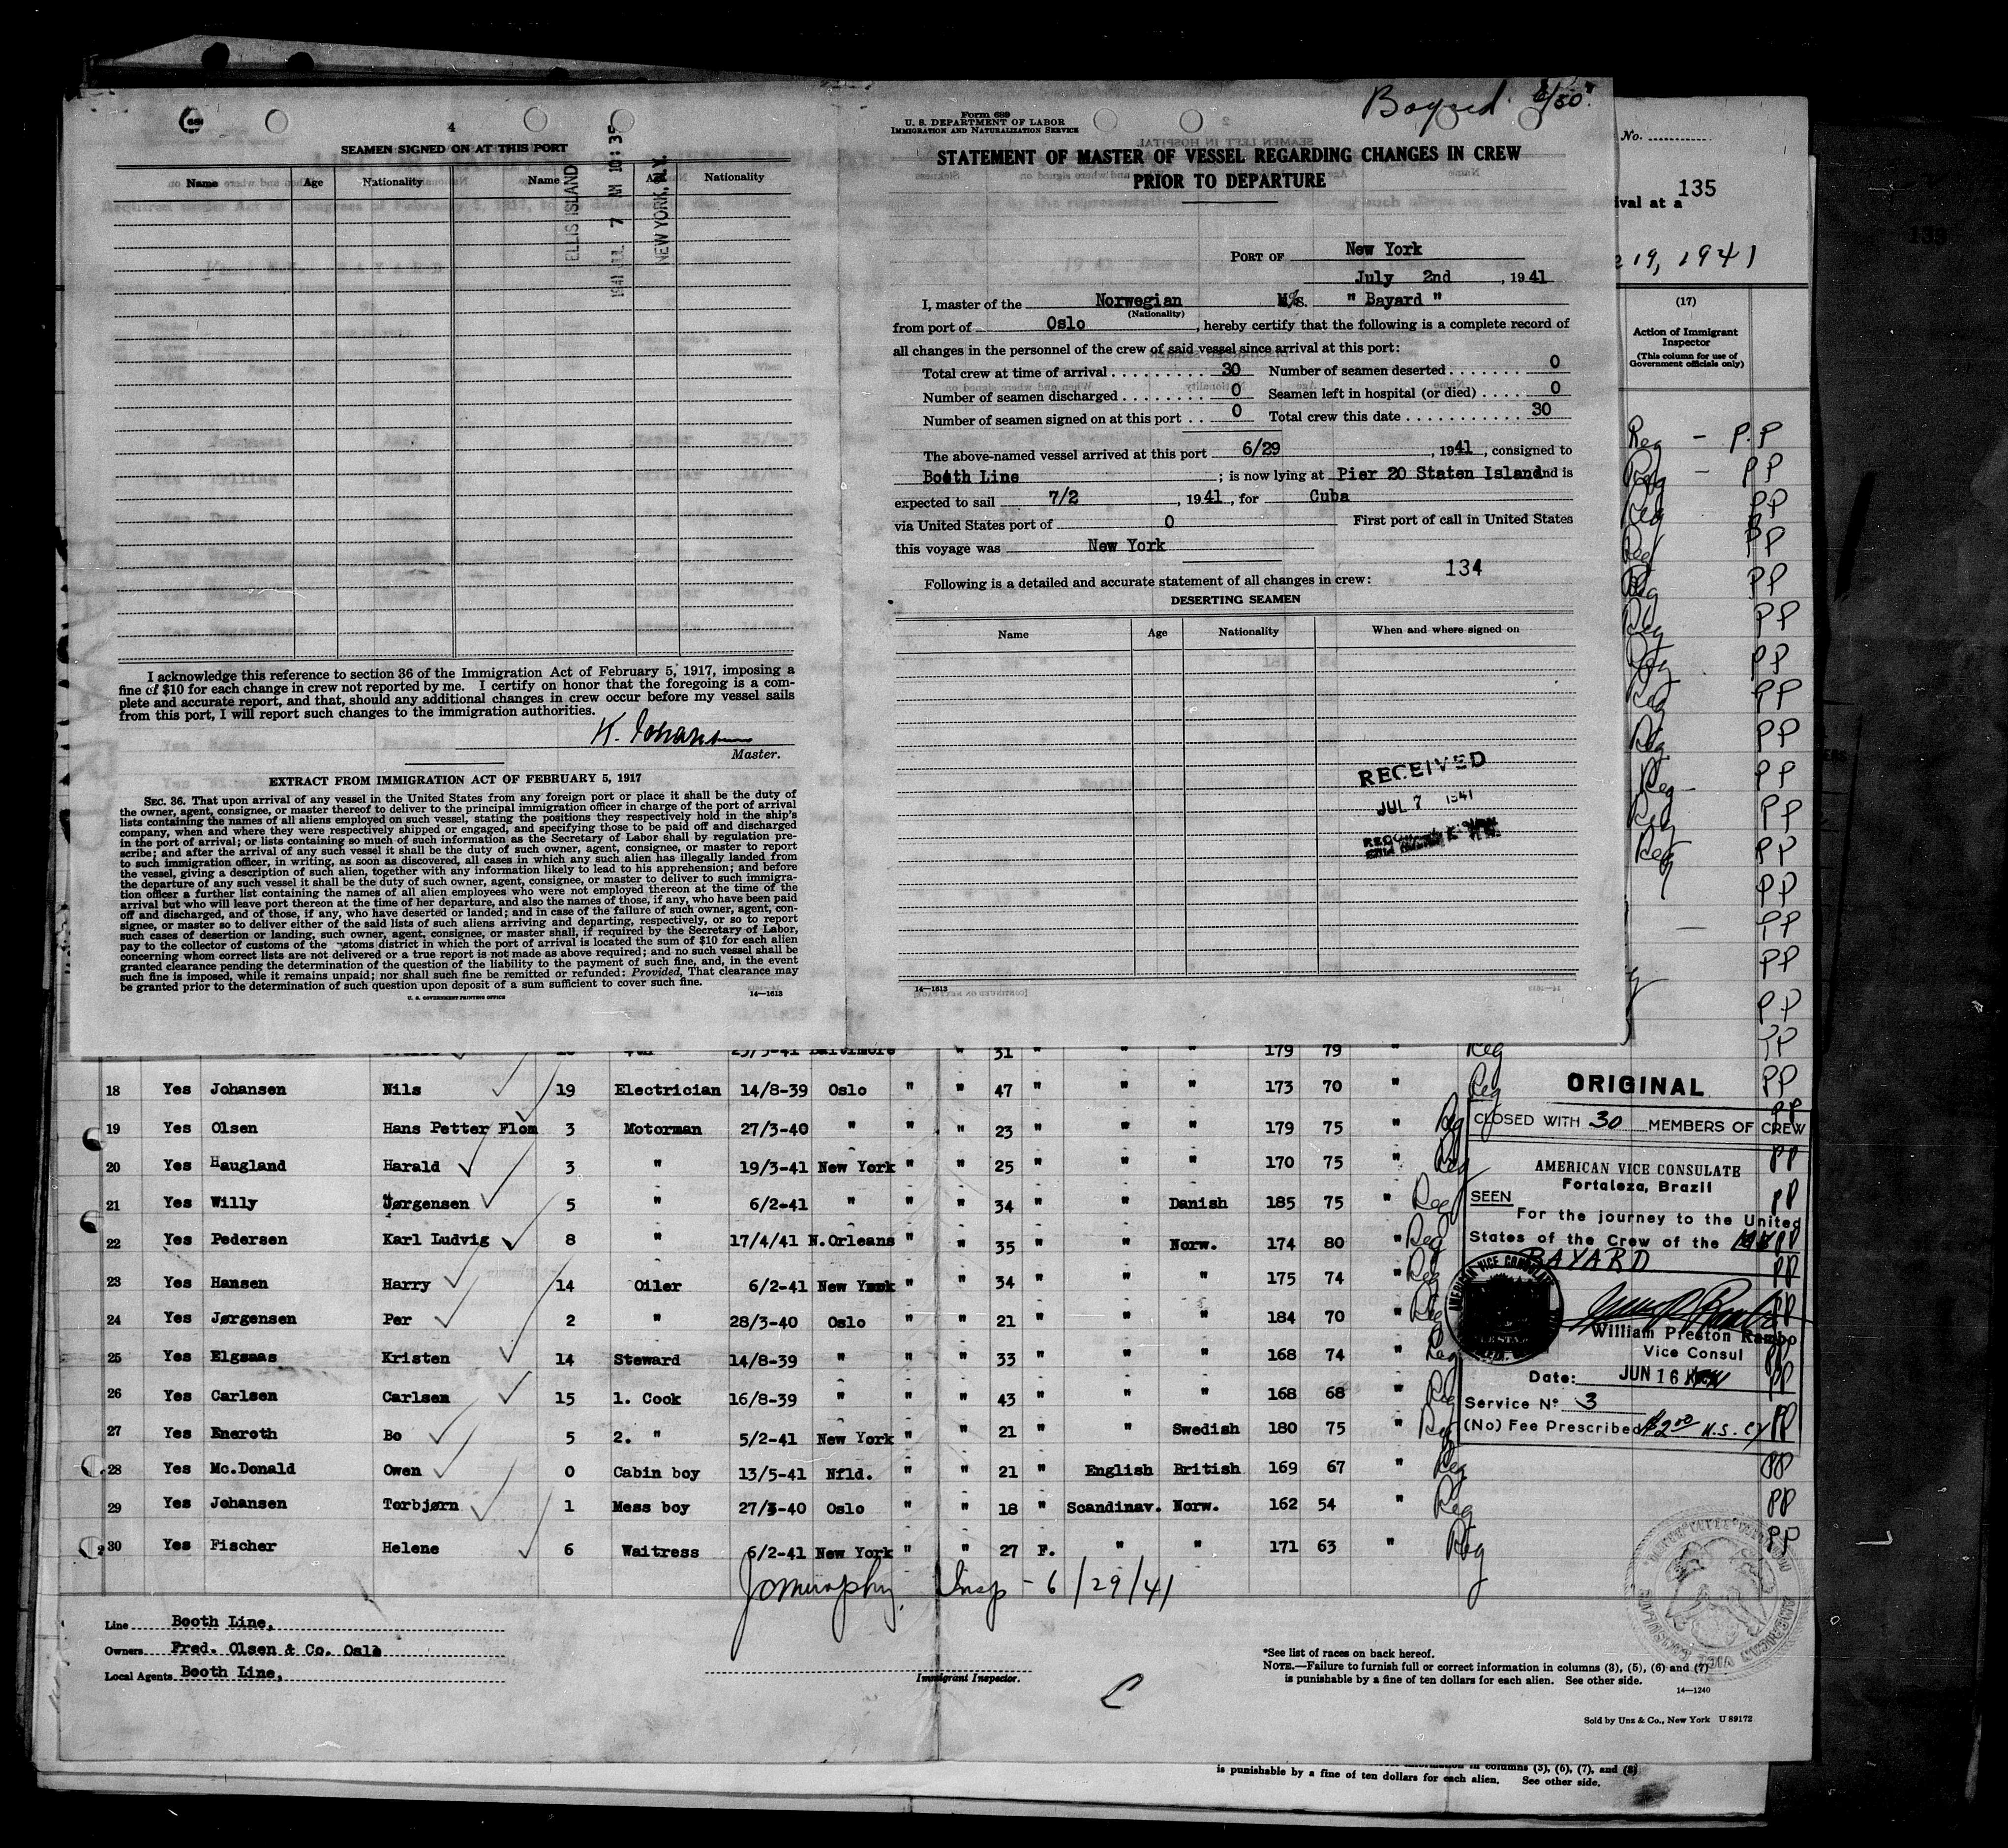 4
SEAMEN SIGNED ON AT THIS PORT
Name Age Nationality Name Age Nationality
ELLIS ISLAND
1941 JUL 7 AM 10:35
NEW YORK, N.Y.
I acknowledge this reference to section 36 of the Immigration Act of February 5, 1917, imposing a
fine of $10 for each change in crew not reported by me. I certify on honor that the foregoing is a com-
plete and accurate report, and that, should any additional changes in crew occur before my vessel sails
from this port, I will report such changes to the immigration authorities.
K. Johansen
Master.
EXTRACT FROM IMMIGRATION ACT OF FEBRUARY 5, 1917
SEC. 36. That upon arrival of any vessel in the United States from any foreign port or place it shall be the duty of
the owner, agent, consignee, or master thereof to deliver to the principal immigration officer in charge of the port of arrival
lists containing the names of all aliens employed on such vessel, stating the positions they respectively hold in the ship's
company, when and where they were respectively shipped or engaged, and specifying those to be paid off and discharged
in the port of arrival; or lists containing so much of such information as the Secretary of Labor shall by regulation pre-
scribe; and after the arrival of any such vessel it shall be the duty of such owner, agent, consignee, or master to report
to such immigration officer, in writing, as soon as discovered, all cases in which any such alien has illegally landed from
the vessel, giving a description of such alien, together with any information likely to lead to his apprehension; and before
the departure of any such vessel it shall be the duty of such owner, agent, consignee, or master to deliver to such immigra-
tion officer a further list containing the names of all alien employees who were not employed thereon at the time of the
arrival but who will leave port thereon at the time of her departure, and also the names of those, if any, who have been paid
off and discharged, and of those, if any, who have deserted or landed; and in case of the failure of such owner, agent, con-
signee, or master so to deliver either of the said lists of such aliens arriving and departing, respectively, or so to report
such cases of desertion or landing, such owner, agent, consignee, or master shall, if required by the Secretary of Labor,
pay to the collector of customs of the customs district in which the port of arrival is located the sum of $10 for each alien
concerning whom correct lists are not delivered or a true report is not made as above required; and no such vessel shall be
granted clearance pending the determination of the question of the liability to the payment of such fine, and, in the event
such fine is imposed, while it remains unpaid; nor shall such fine be remitted or refunded: Provided, That clearance may
be granted prior to the determination of such question upon deposit of a sum sufficient to cover such fine.
U. S. GOVERNMENT PRINTING OFFICE 14—1613
Bayard 6/30
Form 689
U. S. DEPARTMENT OF LABOR
IMMIGRATION AND NATURALIZATION SERVICE
STATEMENT OF MASTER OF VESSEL REGARDING CHANGES IN CREW
PRIOR TO DEPARTURE
PORT OF New York
July 2nd, 1941
I, master of the Norwegian M/S. " Bayard "
(Nationality)
from port of Oslo, hereby certify that the following is a complete record of
all changes in the personnel of the crew of said vessel since arrival at this port:
Total crew at time of arrival 30 Number of seamen deserted 0
Number of seamen discharged 0 Seamen left in hospital (or died) 0
Number of seamen signed on at this port 0 Total crew this date 30
The above-named vessel arrived at this port 6/29, 1941, consigned to
Booth Line; is now lying at Pier 20 Staten Island nd is
expected to sail 7/2, 1941, for Cuba
via United States port of 0 First port of call in United States
this voyage was New York
134
Following is a detailed and accurate statement of all changes in crew:
DESERTING SEAMEN
Name Age Nationality When and where signed on
RECEIVED
JUL 7 1941
14—1613
No.
135
ival at a
19, 1941
(17)
Action of Immigrant
Inspector
(This column for use of
Government officials only)
Reg - P.P
Reg - PP
Reg PP
Reg PP
Reg PP
Reg PP
Reg PP
Reg PP
Reg PP
Reg PP
Reg PP
Reg PP
PP
PP
PP
PP
PP
23/3-41 Baltimore " " 31 " " " 179 79 " Reg
18 Yes Johansen Nils 19 Electrician 14/8-39 Oslo " " 47 " " " 173 70 " Reg PP
19 Yes Olsen Hans Petter Flom 3 Motorman 27/3-40 " " " 23 " " " 179 75 " Reg PP
20 Yes Haugland Harald 3 " 19/3-41 New York " " 25 " " " 170 75 " Reg PP
21 Yes Willy Jørgensen 5 " 6/2-41 " " " 34 " " Danish 185 75 " Reg PP
22 Yes Pedersen Karl Ludvig 8 " 17/4/41 N.Orleans " " 35 " " Norw. 174 80 " Reg PP
23 Yes Hansen Harry 14 Oiler 6/2-41 New York " " 34 " " " 175 74 " Reg PP
24 Yes Jørgensen Per 2 " 28/3-40 Oslo " " 21 " " " 184 70 " Reg PP
25 Yes Elgsaas Kristen 14 Steward 14/8-39 " " " 33 " " " 168 74 " Reg PP
26 Yes Carlsen Carlsen 15 1. Cook 16/8-39 " " " 43 " " " 168 68 " Reg PP
27 Yes Eneroth Bo 5 2. " 5/2-41 New York " " 21 " " Swedish 180 75 " Reg PP
28 Yes Mc.Donald Owen 0 Cabin boy 13/5-41 Nfld. " " 21 " English British 169 67 " Reg PP
29 Yes Johansen Torbjørn 1 Mess boy 27/3-40 Oslo " " 18 " Scandinav. Norw. 162 54 " Reg PP
30 Yes Fischer Helene 6 Waitress 6/2-41 New York " " 27 F. " " 171 63 " Reg PP
ORIGINAL
CLOSED WITH 30 MEMBERS OF CREW
AMERICAN VICE CONSULATE
Fortaleza, Brazil
SEEN
For the journey to the United
States of the Crew of the
BAYARD
AMERICAN VICE CONSULATE
William Preston Rambo
Vice Consul
Date: JUN 16
Service No 3
(No) Fee Prescribed $2.00 U.S. Cy
Jomurphy, Insp - 6/29/41
Line Booth Line,
Owners Fred. Olsen & Co. Oslo
Local Agents Booth Line,
Immigrant Inspector.
C
*See list of races on back hereof.
NOTE.—Failure to furnish full or correct information in columns (3), (5), (6) and (7)
is punishable by a fine of ten dollars for each alien. See other side.
14—1240
Sold by Unz & Co., New York U 89172
AMERICAN VICE CONSULATE
columns (3), (6), (7), and (8)
is punishable by a fine of ten dollars for each alien. See other side.